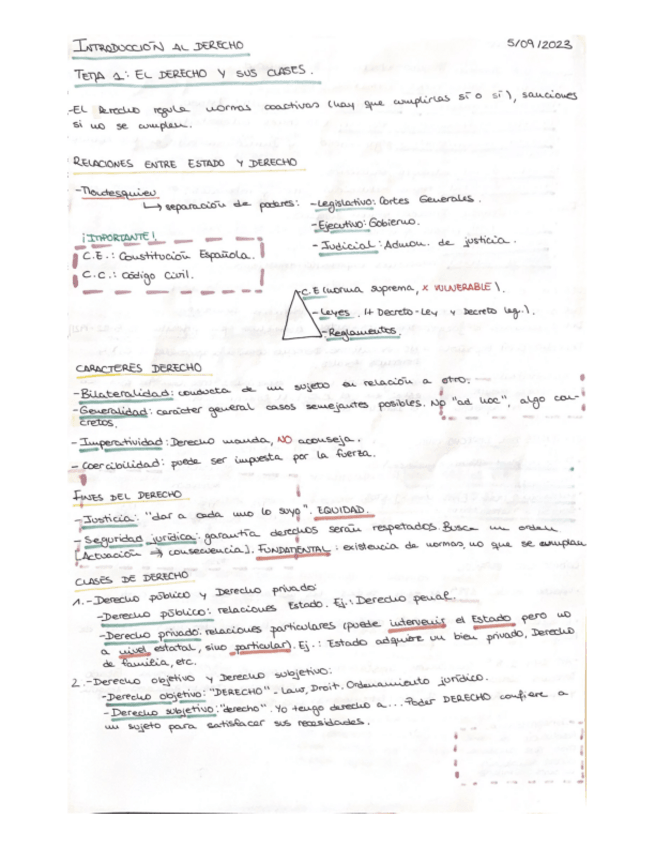 INTRODUCCIÓN AL DERECHO 5/09/2023
TEMA 1: EL DERECHO Y SUS CLASES.
-El Derecho regula normas coactivas (hay que cumplirlas sí o sí), sanciones
si no se cumplen.
RELACIONES ENTRE ESTADO Y DERECHO
-Montesquieu
↳ separación de poderes: -Legislativo: Cortes Generales.
-Ejecutivo: Gobierno.
-Judicial: Admon. de justicia.
¡IMPORTANTE!
C.E.: Constitución Española.
C.C.: Código Civil.
C.E (norma suprema, X VULNERABLE).
-Leyes. (+ Decreto-Ley y Decreto leg.).
-Reglamentos.
CARACTERES DERECHO
-Bilateralidad: conducta de un sujeto en relación a otro.
-Generalidad: carácter general casos semejantes posibles. No "ad hoc", algo con-
cretos.
-Imperatividad: Derecho manda, NO aconseja.
-Coercibilidad: puede ser impuesta por la fuerza.
FINES DEL DERECHO
-Justicia: "dar a cada uno lo suyo". EQUIDAD.
-Seguridad jurídica: garantía derechos serán respetados. Busca un orden
[Actuación → consecuencia]. FUNDAMENTAL: existencia de normas, no que se cumplan
CLASES DE DERECHO
1.-Derecho público y Derecho privado:
-Derecho público: relaciones Estado. Ej.: Derecho penal.
-Derecho privado: relaciones particulares (puede intervenir el Estado pero no
a nivel estatal, sino particular). Ej.: Estado adquiere un bien privado, Derecho
de familia, etc.
2.-Derecho objetivo y Derecho subjetivo:
-Derecho objetivo: "DERECHO" - Law, Droit. Ordenamiento jurídico.
-Derecho subjetivo: "derecho". Yo tengo derecho a... Poder DERECHO confiere a
un sujeto para satisfacer sus necesidades.